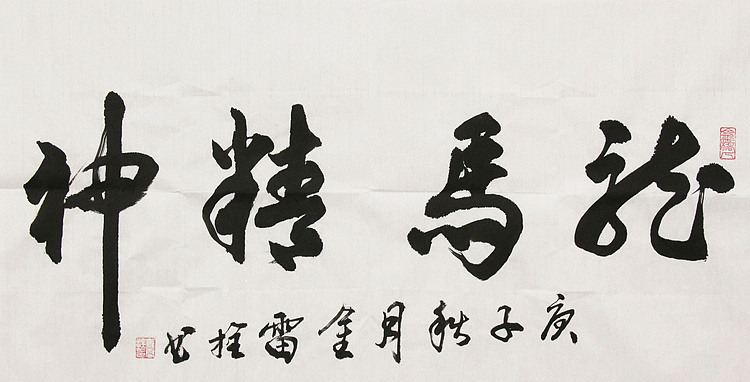 龍馬精神
庚子秋月金雷拴书